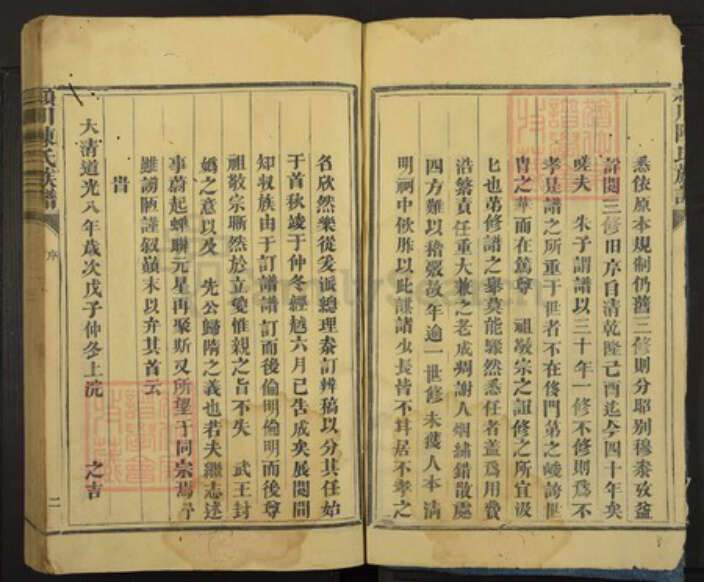 悉依原本規制仍舊三修則分昭別穆泰攷益
詳閱三修旧序自清乾隆己酉迄今四十年矣
嗟夫 朱子謂譜以三十年一修不修則為不
孝是譜之所重于世者不在侈門第之峻誇世
冑之華而在篤尊 祖敬宗之誼修之所宜汲
七也第修譜之舉莫能驟然悉任者蓋為用費
浩繁責任重大兼之老成凋謝人烟繡錯散處
四方難以稽覈故年逾一世修未獲人本清
明祠中俟胙以此謀諸少長皆不其居不孝之
名欣然樂從爰派總理泰訂辨稿以分其任始
于首秋竣于仲冬經越六月已告成矣展閱間
知収族由于訂譜譜訂而後倫明倫明而後尊
祖敬宗斷然於立愛惟親之旨不失 武王封
媯之意以及 先公歸隋之義也若夫繼志述
事蔚起蟬聯元星再聚斯又所望于同宗焉予
雖謭陋謹叙巔末以弁其首云
大清道光八年歲次戊子仲冬上浣 之吉
潁川陳氏族譜
序
二